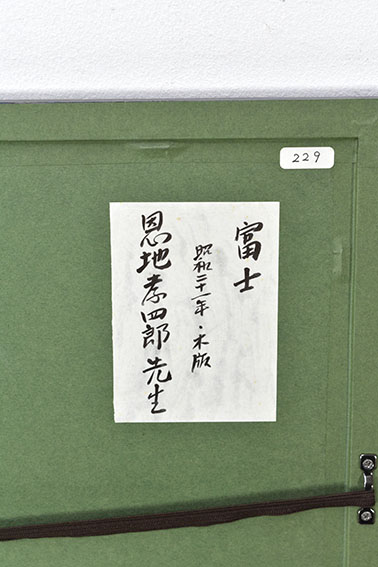 229
富士
昭和二十一年・木版
恩地孝四郎先生